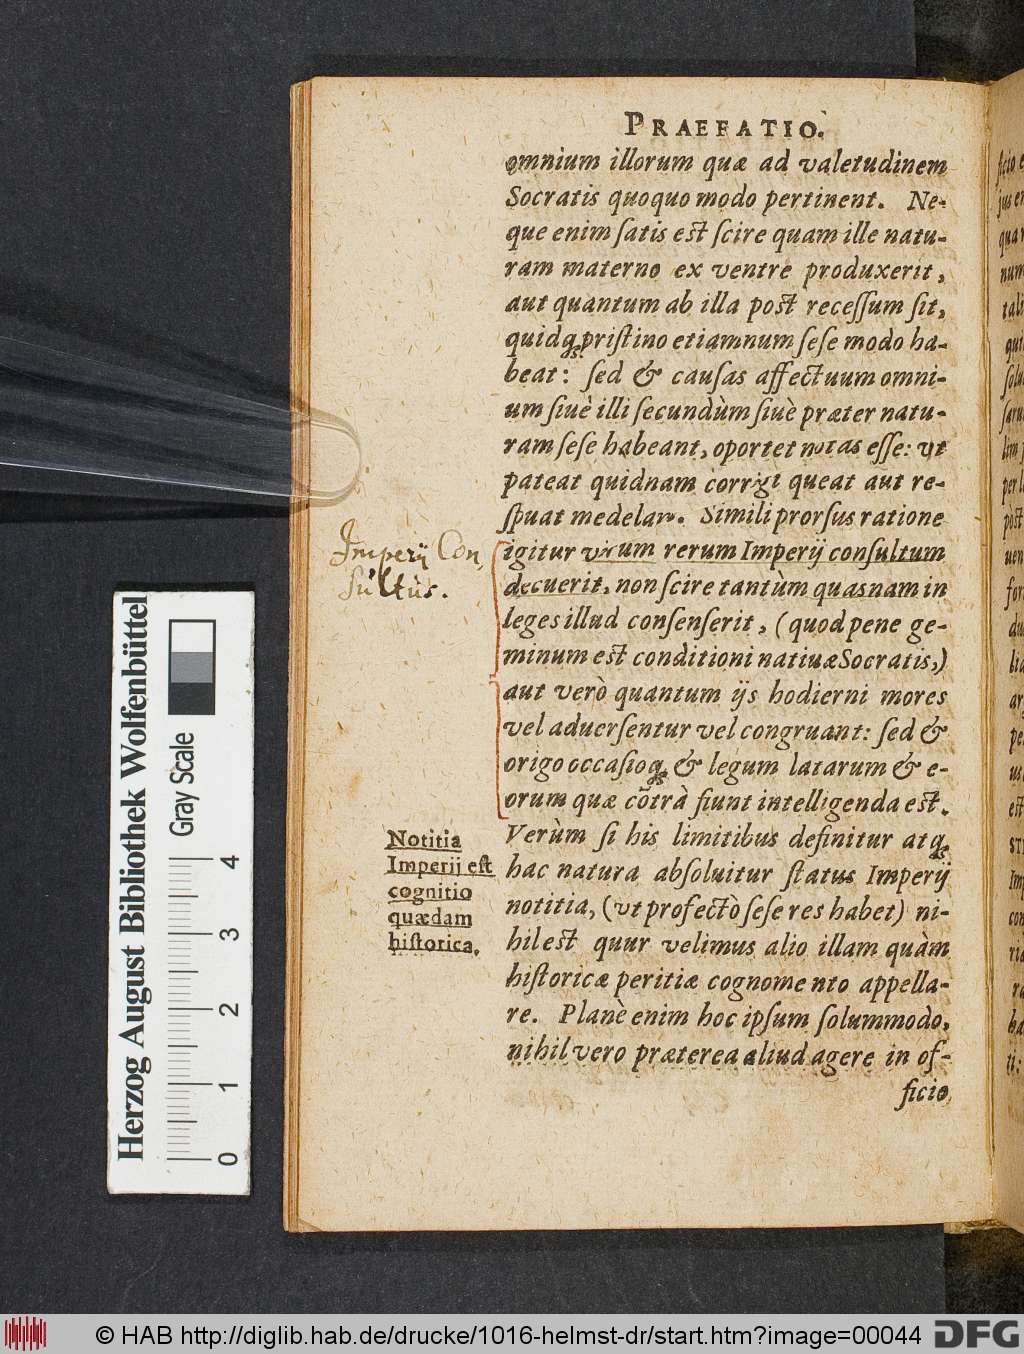 PRAEFATIO.
omnium illorum quæ ad valetudinem
Socratis quoquo modo pertinent. Ne-
que enim ſatis est ſcire quam ille natu-
ram materno ex ventre produxerit,
aut quantum ab illa post receſſum ſit,
quidq; priſtino etiamnum ſeſe modo ha-
beat: ſed & cauſas affectuum omni-
um ſiuè illi ſecundùm ſiuè præter natu-
ram ſeſe habeant, oportet notas eſſe: vt
pateat quidnam corrigi queat aut re-
ſpuat medelam. Simili prorſus ratione
igitur virum rerum Imperij conſultum
decuerit, non ſcire tantùm quasnam in
leges illud conſenſerit, (quod pene ge-
minum est conditioni natiuæ Socratis,)
aut verò quantum ijs hodierni mores
vel aduerſentur vel congruant: ſed &
origo occaſioq; & legum latarum & e-
orum quæ cõtrà fiunt intelligenda est.
Verùm ſi his limitibus definitur atq;
hac natura abſoluitur ſtatus Imperij
notitia, (vt profectò ſeſe res habet) ni-
hil est quur velimus alio illam quàm
hiſtoricæ peritiæ cognomento appella-
re. Planè enim hoc ipſum ſolummodo,
nihil vero præterea aliud agere in of-
ficio
Imperij Con,
ſultus.
Notitia
Imperij eſt
cognitio
quædam
hiſtorica.
Herzog August Bibliothek Wolfenbüttel
Gray Scale
0 1 2 3 4
© HAB http://diglib.hab.de/drucke/1016-helmst-dr/start.htm?image=00044
DFG